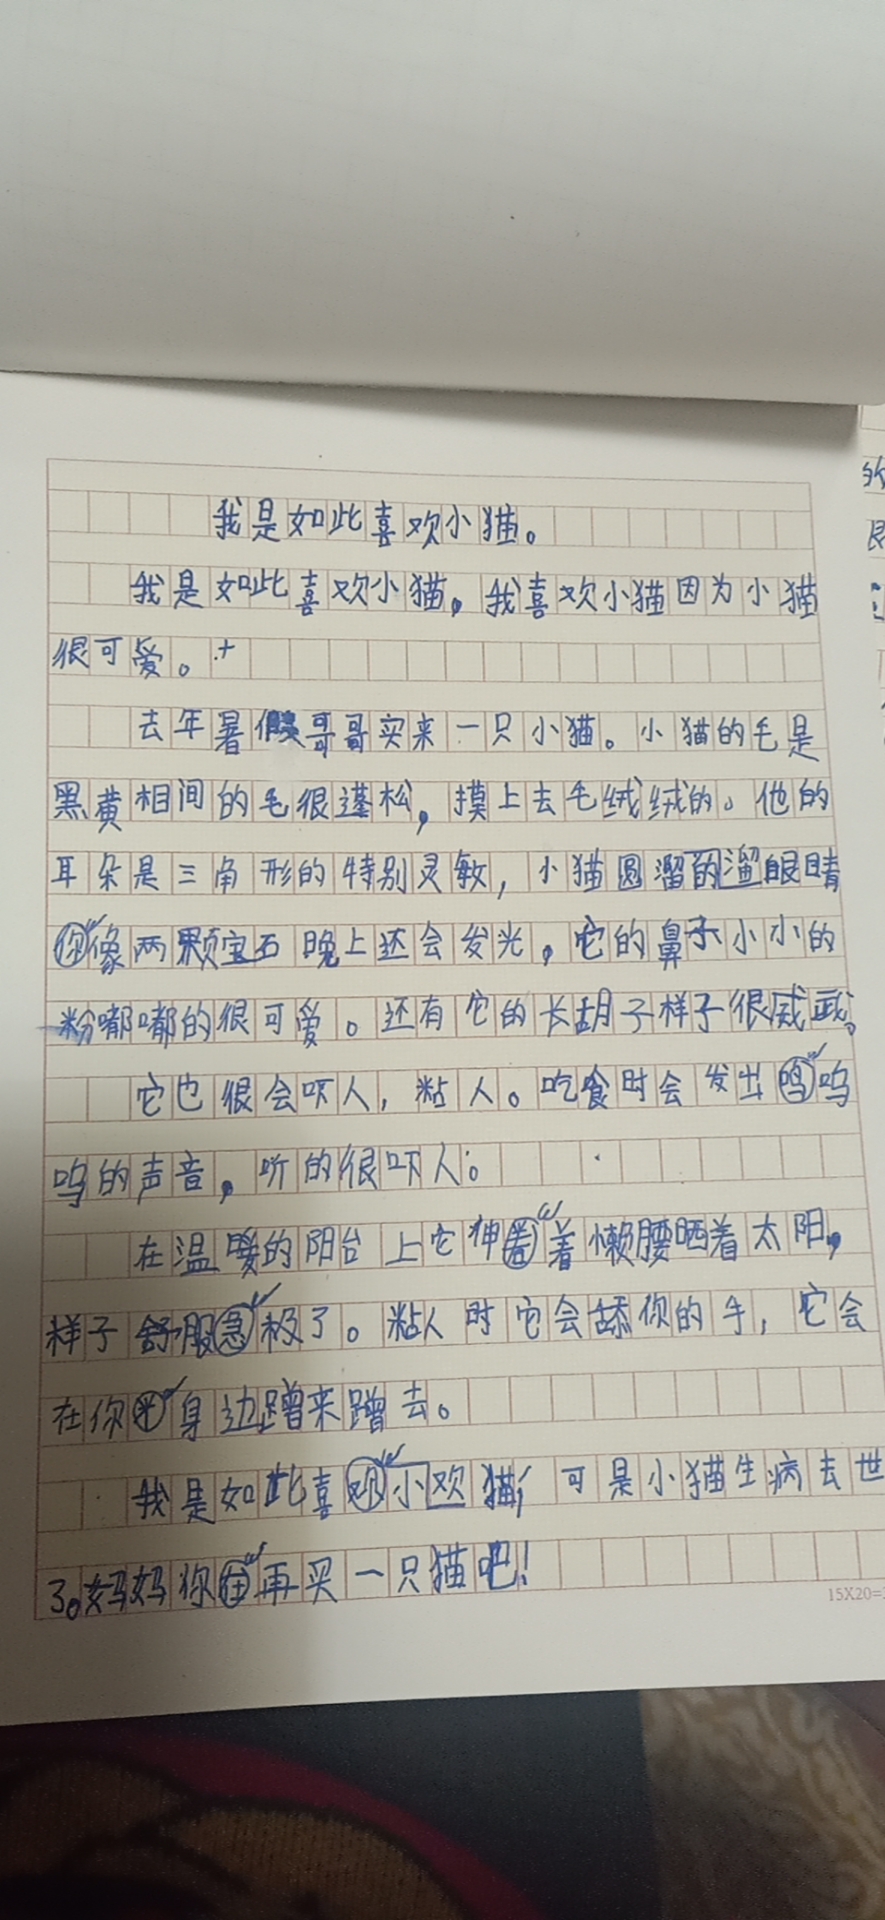 我是如此喜欢小猫。
我是如此喜欢小猫，我喜欢小猫因为小猫
很可爱。
去年暑假哥哥买来一只小猫。小猫的毛是
黑黄相间的毛很蓬松，摸上去毛绒绒的。他的
耳朵是三角形的特别灵敏，小猫圆溜的溜眼睛
像两颗宝石晚上还会发光，它的鼻子小小的
粉嘟嘟的很可爱。还有它的长胡子样子很威武。
它也很会吓人，粘人。吃食时会发出呜
呜的声音，听的很吓人。
在温暖的阳台上它伸着懒腰晒着太阳，
样子舒服极了。粘人时它会舔你的手，它会
在你身边蹭来蹭去。
我是如此喜小欢猫，可是小猫生病去世
了。妈妈你再买一只猫吧！
15X20=